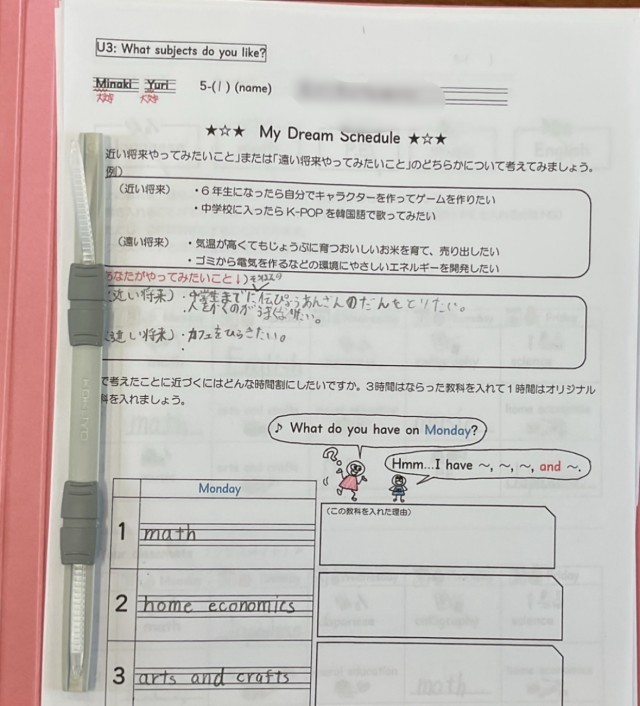 U3: What subjects do you like?
Minaki Yuri 5-(1) (name)
大文字 大文字
★☆★ My Dream Schedule ★☆★
近い将来やってみたいこと」または「遠い将来やってみたいこと」のどちらかについて考えてみましょう。
例)
(近い将来) ・6年生になったら自分でキャラクターを作ってゲームを作りたい
・中学校に入ったらK-POPを韓国語で歌ってみたい
(遠い将来) ・気温が高くてもじょうぶに育つおいしいお米を育て、売り出したい
・ゴミから電気を作るなどの環境にやさしいエネルギーを開発したい
あなたがやってみたいこと↓)
(近い将来)・中学生までに のだんをとりたい。
人をかくのがうまくなりたい。
(遠い将来)・カフェをひらきたい。
で考えたことに近づくにはどんな時間割にしたいですか。3時間はならった教科を入れて1時間はオリジナル
科を入れましょう。
♪ What do you have on Monday?
Hmm...I have ～, ～, ～, and ～.
Monday
(この教科を入れた理由)
1 math
2 home economics
3 arts and crafts